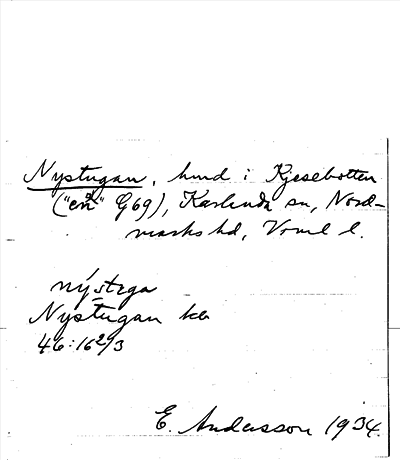 Nystugan, hmd i Kjesebotten
("en" G69), Karlanda sn, Nord-
marks hd, Vrml l.
nýstꞷga
Nystugan kb
46:16²/3
E. Andersson 1934.